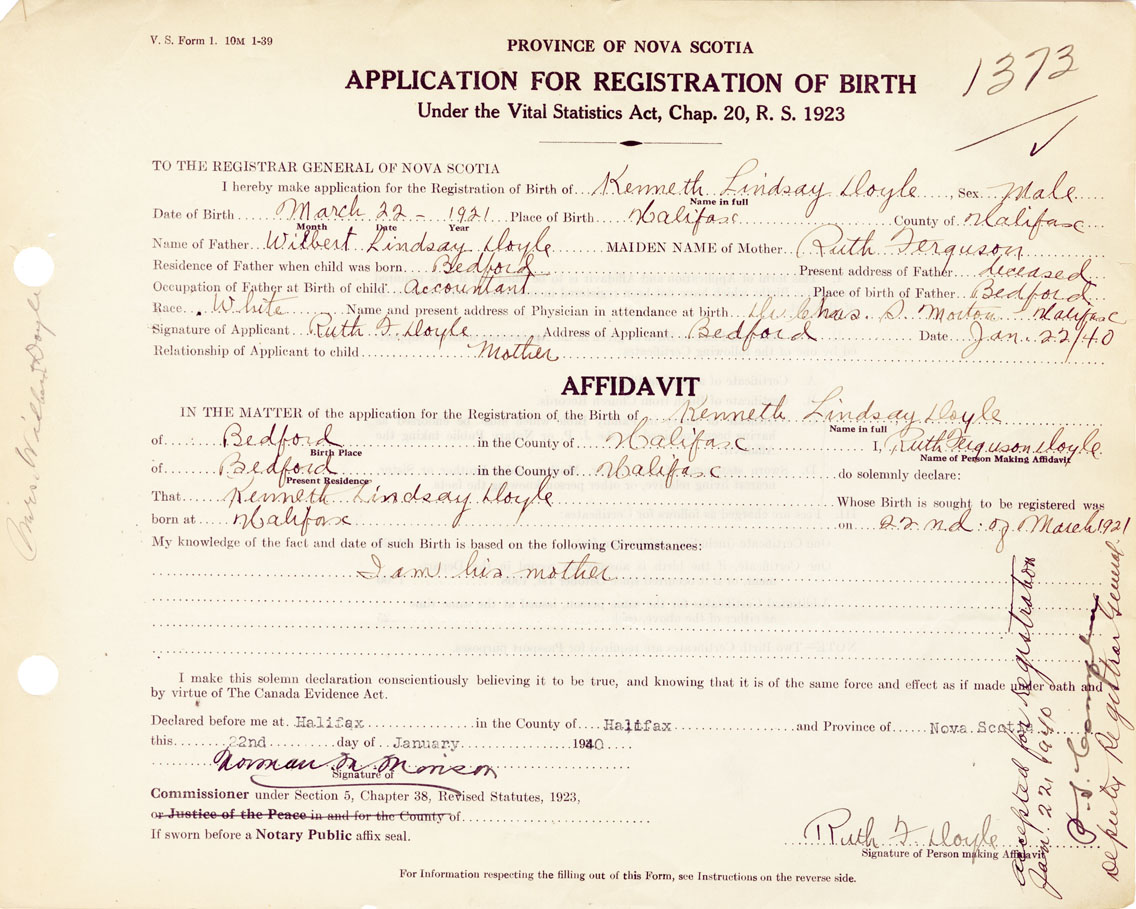 V. S. Form 1. 10M 1-39
PROVINCE OF NOVA SCOTIA
1373
APPLICATION FOR REGISTRATION OF BIRTH
Under the Vital Statistics Act, Chap. 20, R. S. 1923
TO THE REGISTRAR GENERAL OF NOVA SCOTIA
I hereby make application for the Registration of Birth of Kenneth Lindsay Doyle, Sex Male
Name in full
Date of Birth March 22 - 1921 Place of Birth Halifax County of Halifax
Month Date Year
Name of Father Wilbert Lindsay Doyle MAIDEN NAME of Mother Ruth Ferguson
Residence of Father when child was born Bedford Present address of Father deceased
Occupation of Father at Birth of child Accountant Place of birth of Father Bedford
Race White Name and present address of Physician in attendance at birth Dr. Chas. S. Morton Halifax
Signature of Applicant Ruth F Doyle Address of Applicant Bedford Date Jan. 22/40
Relationship of Applicant to child Mother
AFFIDAVIT
IN THE MATTER of the application for the Registration of the Birth of Kenneth Lindsay Doyle
Name in full
of Bedford in the County of Halifax I, Ruth Ferguson Doyle
Birth Place Name of Person Making Affidavit
of Bedford in the County of Halifax do solemnly declare:
Present Residence
That Kenneth Lindsay Doyle Whose Birth is sought to be registered was
born at Halifax on 22nd of March 1921
My knowledge of the fact and date of such Birth is based on the following Circumstances:
I am his mother
I make this solemn declaration conscientiously believing it to be true, and knowing that it is of the same force and effect as if made under oath and
by virtue of The Canada Evidence Act.
Declared before me at Halifax in the County of Halifax and Province of Nova Scotia
this 22nd day of January 1940
Norman M. Morison
Signature of
Commissioner under Section 5, Chapter 38, Revised Statutes, 1923,
or Justice of the Peace in and for the County of
If sworn before a Notary Public affix seal.
Ruth F Doyle
Signature of Person making Affidavit
For Information respecting the filling out of this Form, see Instructions on the reverse side.
Accepted for registration
Jan. 22 1940
Deputy Registrar General.
Mrs. Doyle